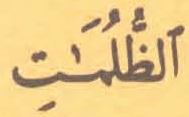 ٱلظُّلُمَـٰتِ